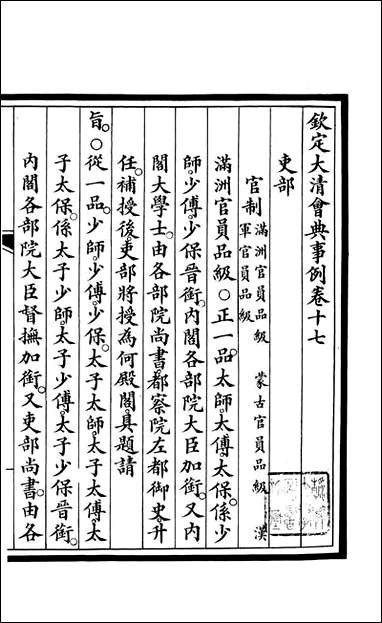 欽定大清會典事例卷十七
吏部
官制 滿洲官員品級 蒙古官員品級 漢
軍官員品級
滿洲官員品級〇正一品。太師。太傅。太保。係少
師。少傅。少保晉銜。內閣各部院大臣加銜。又內
閣大學士。由各部院尚書。都察院左都御史。升
任。補授後吏部將授為何殿閣。具題請
旨。〇從一品。少師。少傅。少保。太子太師。太子太傅。太
子太保。係太子少師。太子少傅。太子少保晉銜。
內閣各部院大臣督撫加銜。又吏部尚書。由各